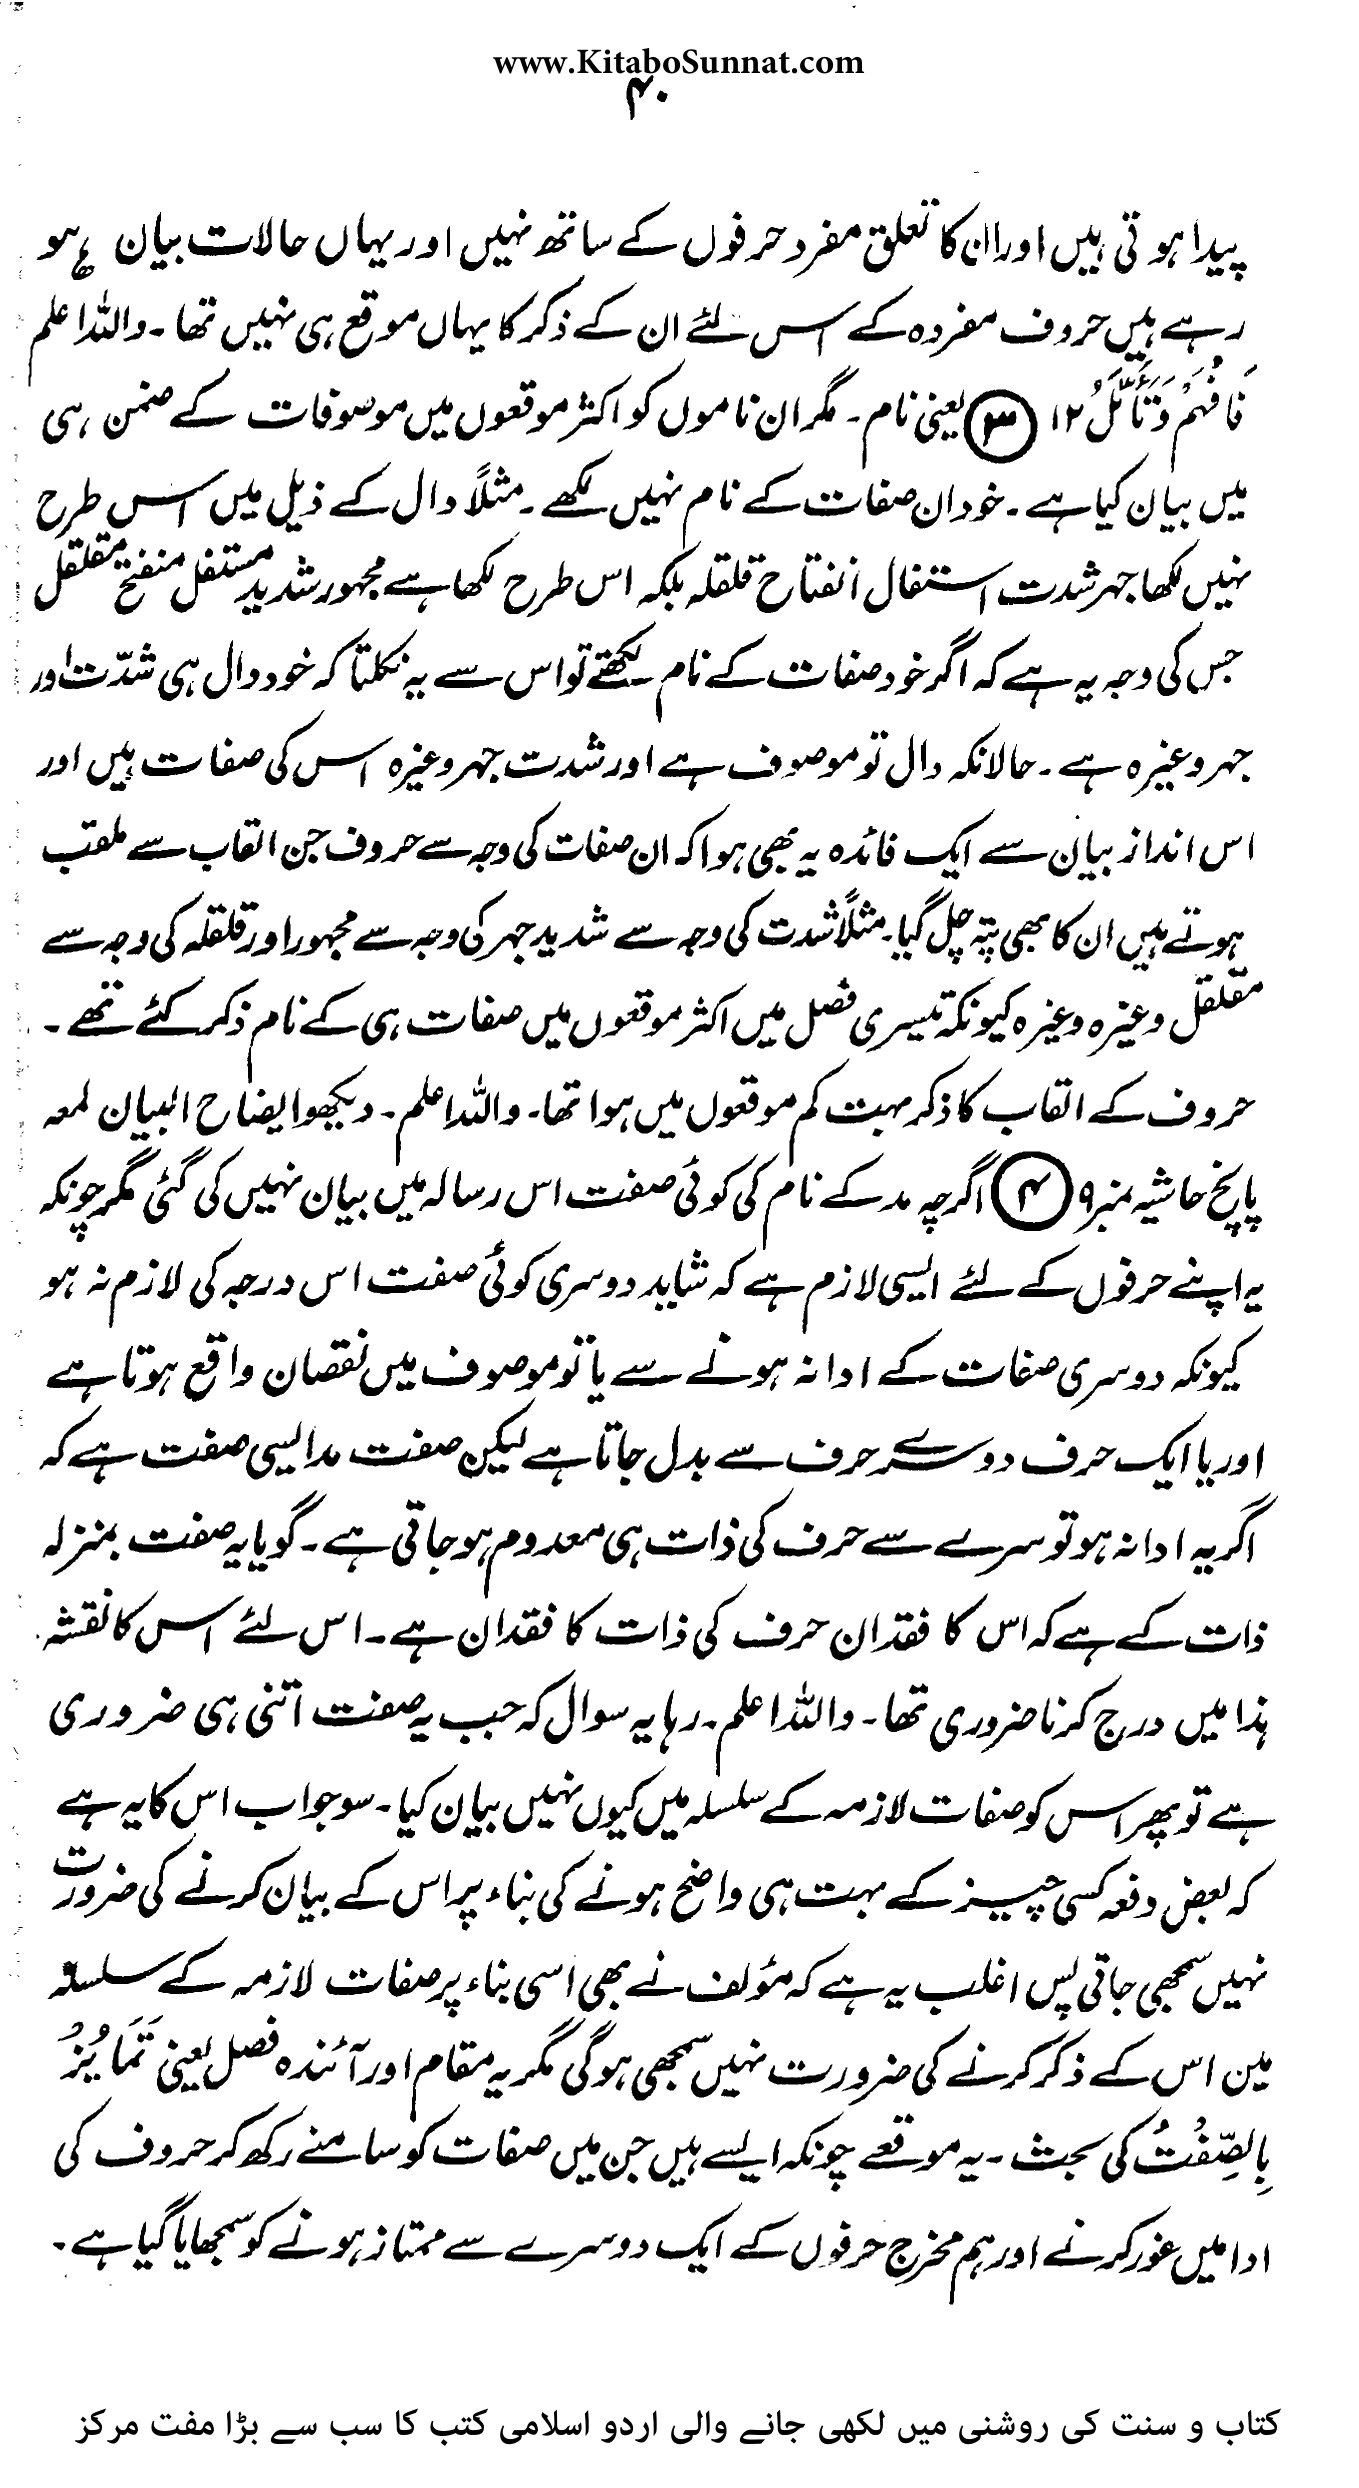 www.KitaboSunnat.com
۴۰
پیدا ہوتی ہیں اور ان کا تعلق مفرد حرفوں کے ساتھ نہیں اور یہاں حالات بیان ہو
رہے ہیں حروف مفردہ کے اس لئے ان کے ذکر کا یہاں موقع ہی نہیں تھا۔ واللہ اعلم
فَافْہَمْ وَتَأَمَّلْ ۱۲ ③ یعنی نام۔ مگر ان ناموں کو اکثر موقعوں میں موصوفات کے ضمن ہی
میں بیان کیا ہے۔ خود ان صفات کے نام نہیں لکھے۔ مثلاً دال کے ذیل میں اس طرح
نہیں لکھا جہر شدت استفال انفتاح قلقلہ بلکہ اس طرح لکھا ہے مجہور شدید مستفل منفتح مقلقل
جس کی وجہ یہ ہے کہ اگر خود صفات کے نام لکھتے تو اس سے یہ نکلتا کہ خود دال ہی شدّت اور
جہر وغیرہ ہے۔ حالانکہ دال تو موصوف ہے اور شدت جہر وغیرہ اس کی صفات ہیں اور
اس انداز بیان سے ایک فائدہ یہ بھی ہوا کہ ان صفات کی وجہ سے حروف جن القاب سے ملقب
ہوتے ہیں ان کا بھی پتہ چل گیا۔ مثلاً شدت کی وجہ سے شدید جہر کی وجہ سے مجہور اور قلقلہ کی وجہ سے
مقلقل وغیرہ وغیرہ کیونکہ تیسری فصل میں اکثر موقعوں میں صفات ہی کے نام ذکر کئے تھے۔
حروف کے القاب کا ذکر بہت کم موقعوں میں ہوا تھا۔ واللہ اعلم۔ دیکھو ایضاح البیان لمعہ
پانچ حاشیہ نمبر ۹ ④ اگرچہ مد کے نام کی کوئی صفت اس رسالہ میں بیان نہیں کی گئی مگر چونکہ
یہ اپنے حرفوں کے لئے ایسی لازم ہے کہ شاید دوسری کوئی صفت اس درجہ کی لازم نہ ہو
کیونکہ دوسری صفات کے ادا نہ ہونے سے یا تو موصوف میں نقصان واقع ہوتا ہے
اور یا ایک حرف دوسرے حرف سے بدل جاتا ہے لیکن صفت مد ایسی صفت ہے کہ
اگر یہ ادا نہ ہو تو سرے سے حرف کی ذات ہی معدوم ہو جاتی ہے۔ گویا یہ صفت بمنزلہ
ذات کے ہے کہ اس کا فقدان حرف کی ذات کا فقدان ہے۔ اس لئے اس کا نقشہ
ہذا میں درج کرنا ضروری تھا۔ واللہ اعلم۔ رہا یہ سوال کہ جب یہ صفت اتنی ہی ضروری
ہے تو پھر اس کو صفات لازمہ کے سلسلہ میں کیوں نہیں بیان کیا۔ سو جواب اس کا یہ ہے
کہ بعض دفعہ کسی چیز کے بہت ہی واضح ہونے کی بناء پر اس کے بیان کرنے کی ضرورت
نہیں سمجھی جاتی پس اغلب یہ ہے کہ مؤلف نے بھی اسی بناء پر صفات لازمہ کے سلسلہ
مین اس کے ذکر کرنے کی ضرورت نہیں سمجھی ہوگی مگر یہ مقام اور آئندہ فصل یعنی تَمَایُزُ
بِالصِّفْتُ کی بحث۔ یہ موقعے چونکہ ایسے ہیں جن میں صفات کو سامنے رکھ کر حروف کی
ادا میں غور کرنے اور ہم مخرج حرفوں کے ایک دوسرے سے ممتاز ہونے کو سمجھایا گیا ہے۔
کتاب و سنت کی روشنی میں لکھی جانے والی اردو اسلامی کتب کا سب سے بڑا مفت مرکز